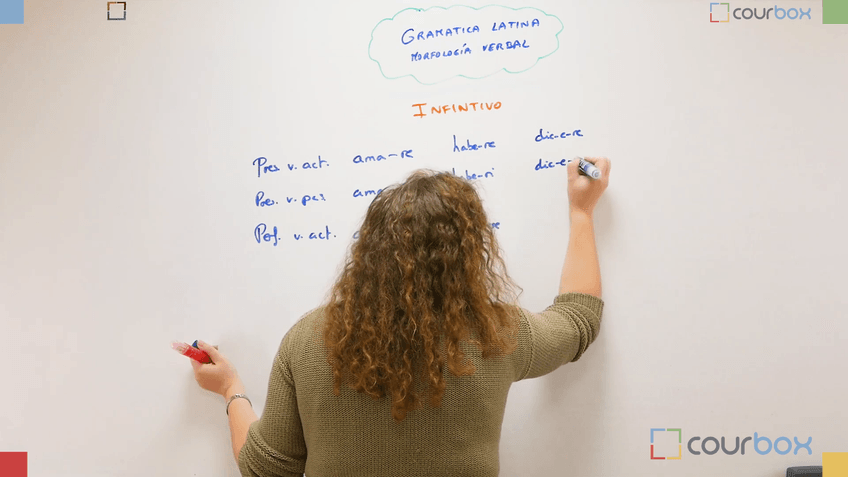 courbox
GRAMATICA LATINA
MORFOLOGÍA VERBAL
INFINTIVO
Pres v. act. ama-re habe-re dic-e-re
Pres. v. pas ama dic-e-
Perf. v. act.
courbox